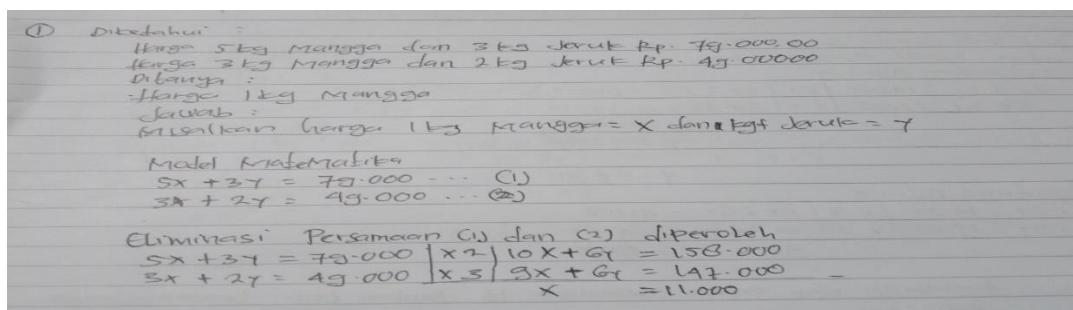 ① Diketahui :
Harga 5 kg Mangga dan 3 kg Jeruk Rp. 79.000,00
Harga 3 kg Mangga dan 2 kg Jeruk Rp. 49.00000
Ditanya :
- Harga 1 kg Mangga
Jawab :
Misalkan harga 1 kg Mangga = X dan 1 kg Jeruk = Y
Model Matematika
5X + 3Y = 79.000 ... (1)
3X + 2Y = 49.000 ... (2)
Eliminasi Persamaan (1) dan (2) diperoleh
5X + 3Y = 79.000 | X 2 | 10X + 6Y = 158.000
3X + 2Y = 49.000 | X 3 | 9X + 6Y = 147.000 -
X = 11.000